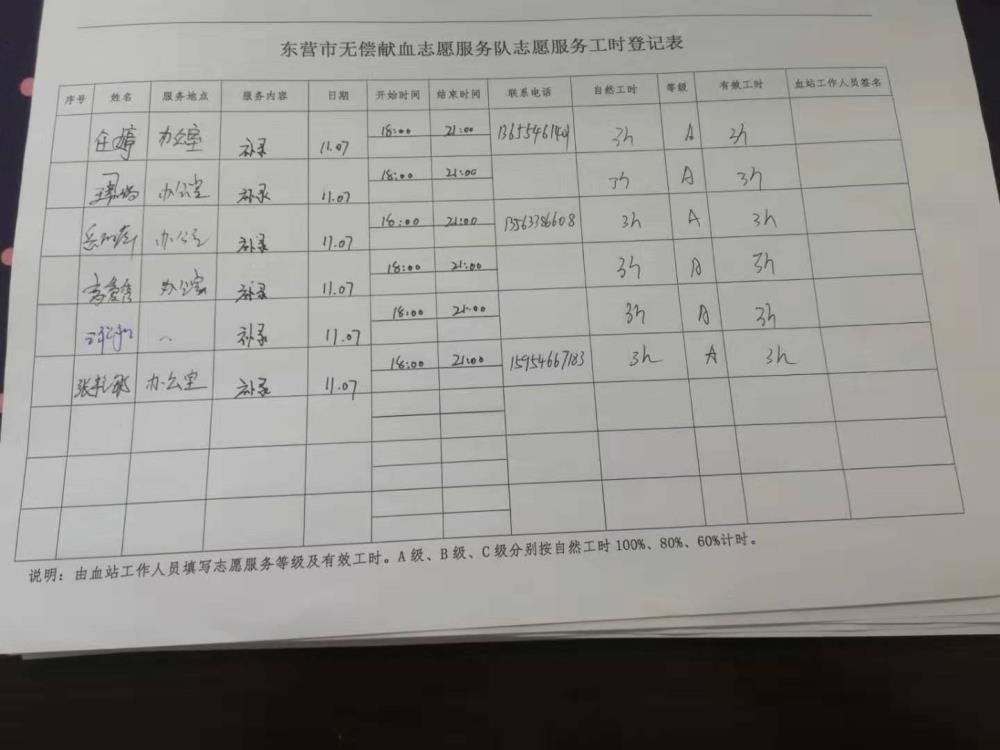 东营市无偿献血志愿服务队志愿服务工时登记表
序号 姓名 服务地点 服务内容 日期 开始时间 结束时间 联系电话 自然工时 等级 有效工时 血站工作人员签名
任婷 办公室 补录 11.07 18:00 21:00 3h A 3h
办公室 补录 11.07 18:00 21:00 3h A 3h
办公室 补录 11.07 18:00 21:00 13563386608 3h A 3h
办公室 补录 11.07 18:00 21:00 3h A 3h
补录 11.07 18:00 21:00 3h A 3h
办公室 补录 11.07 18:00 21:00 15954667183 3h A 3h
说明：由血站工作人员填写志愿服务等级及有效工时。A级、B级、C级分别按自然工时100%、80%、60%计时。